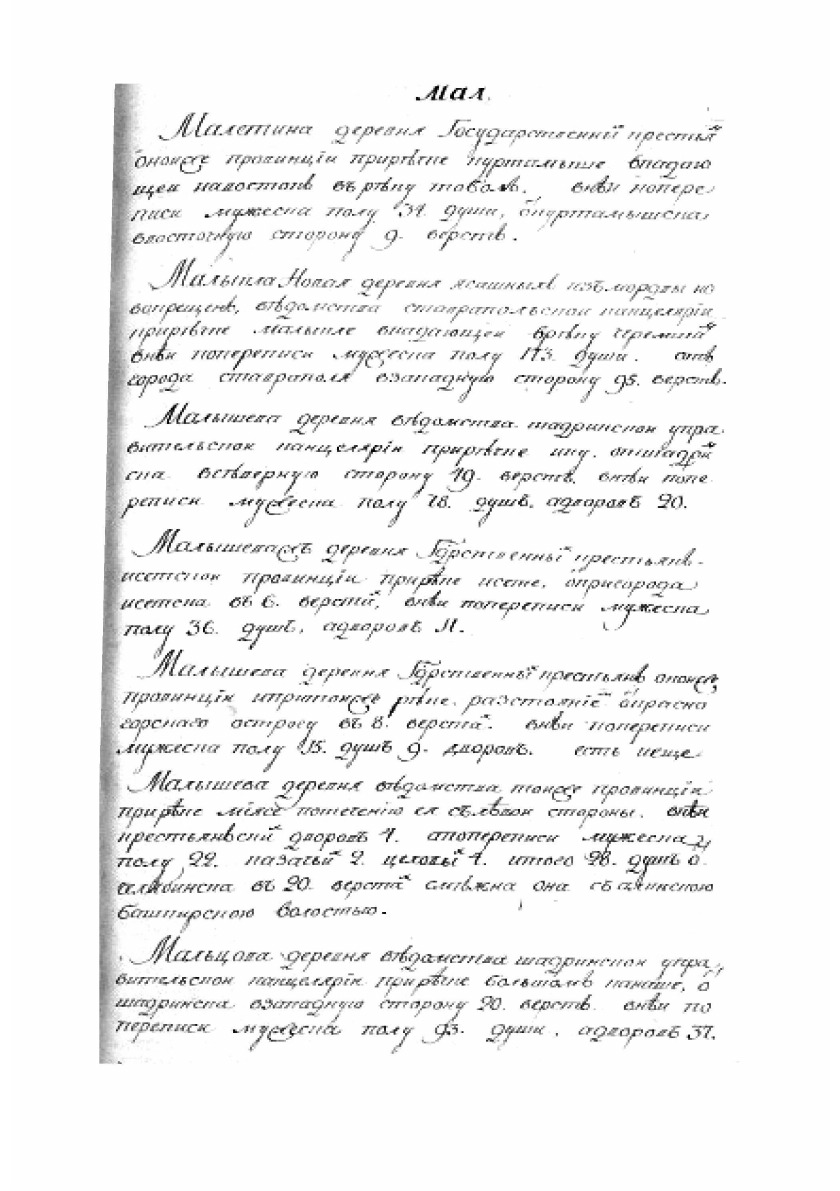 Мал.
Малетина деревня Государственныхъ крестьянъ
оно㮮ке провинціиприрѣчке куртамыше впадаю
щейналостокѣ въ рѣку тоболъ, внѣи попере
писи мужеска полу 34. души, ѿкуртамышска
ввосточную сторону 9. верстъ.
Малыкла Новая деревня ясашныхъ изъ мордвы но
вокрещенъ, вѣдомства ставрапольской канцеляріи
прирѣчке малыкле впадающей врѣку черемшанъ
внѣи попереписи мужеска полу 173. души. отъ
города ставраполя взападную сторону 95. верстъ.
Малышева деревня вѣдомства шадринской упра
вительской канцеляріи прирѣчке ику. отшадрин
ска всѣверную сторону 19. верстъ. внѣи попе
реписи мужеска полу 78. душъ. адворовъ 20.
деревня Гдрственныхъ крестьянъ
исетской провинціи прирѣке исете, ѿпригорода
исетска въ 6. верстахъ, внѣи попереписи мужеска
полу 36. душъ, адворовъ 11.
Малышева деревня Гдрственныхъ крестьянъ
провинціи рѣке. разстояніе ѿкрасно
горскаго острогу въ 8. верстахъ. внѣи попереписи
мужеска полу 15. душъ 9. дворовъ. есть иеще
Малышева деревня вѣдомства тойже провинціи
прирѣке міясе потеченію ея слѣвой стороны. внѣи
крестьянъскихъ дворовъ 4. апопереписи мужеска
полу 22. казачьихъ 2. целовыхъ 4. итого 28. душъ ѿ
челябинска въ 20. верстахъ смѣжна она съ
башкирскою волостью.
Мальцова деревня вѣдомства шадринской упра
вительской канцеляріи прирѣчке большомъ канаше, ѿ
шадринска взападную сторону 20. верстъ. внѣи по
переписи мужеска полу 93. души. адворовъ 37.